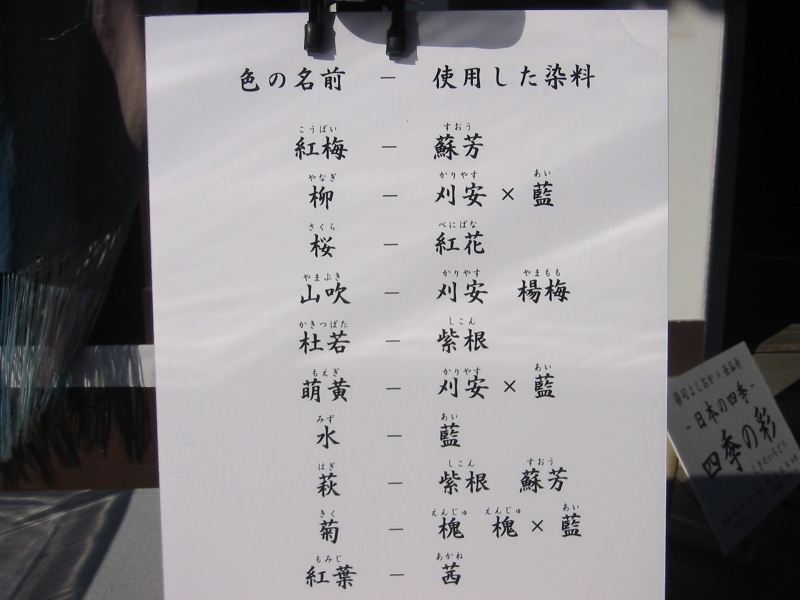 色の名前 － 使用した染料
こうばい すおう
紅梅 － 蘇芳
やなぎ かりやす あい
柳 － 刈安 × 藍
さくら べにばな
桜 － 紅花
やまぶき かりやす やまもも
山吹 － 刈安 楊梅
かきつばた しこん
杜若 － 紫根
もえぎ かりやす あい
萌黄 － 刈安 × 藍
みず あい
水 － 藍
はぎ しこん すおう
萩 － 紫根 蘇芳
きく えんじゅ えんじゅ あい
菊 － 槐 槐 × 藍
もみじ あかね
紅葉 － 茜
染司よしおか×長谷寺
-日本の四季-
四季の彩
しきのいろどり